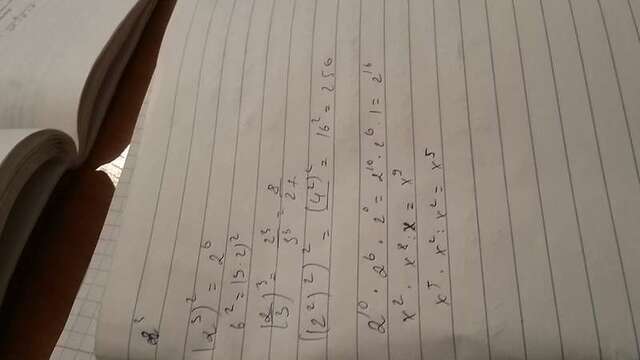 2³
(2³)² = 2⁶
6² = (3 · 2)²
(2/3)³ = 2³/3³ = 8/27
((2²)²)² = (4²)² = 16² = 256
2¹⁰ · 2⁶ · 2⁰ = 2¹⁰ · 2⁶ · 1 = 2¹⁶
x² · x⁸ : x = x⁹
x⁵ · x² : x² = x⁵